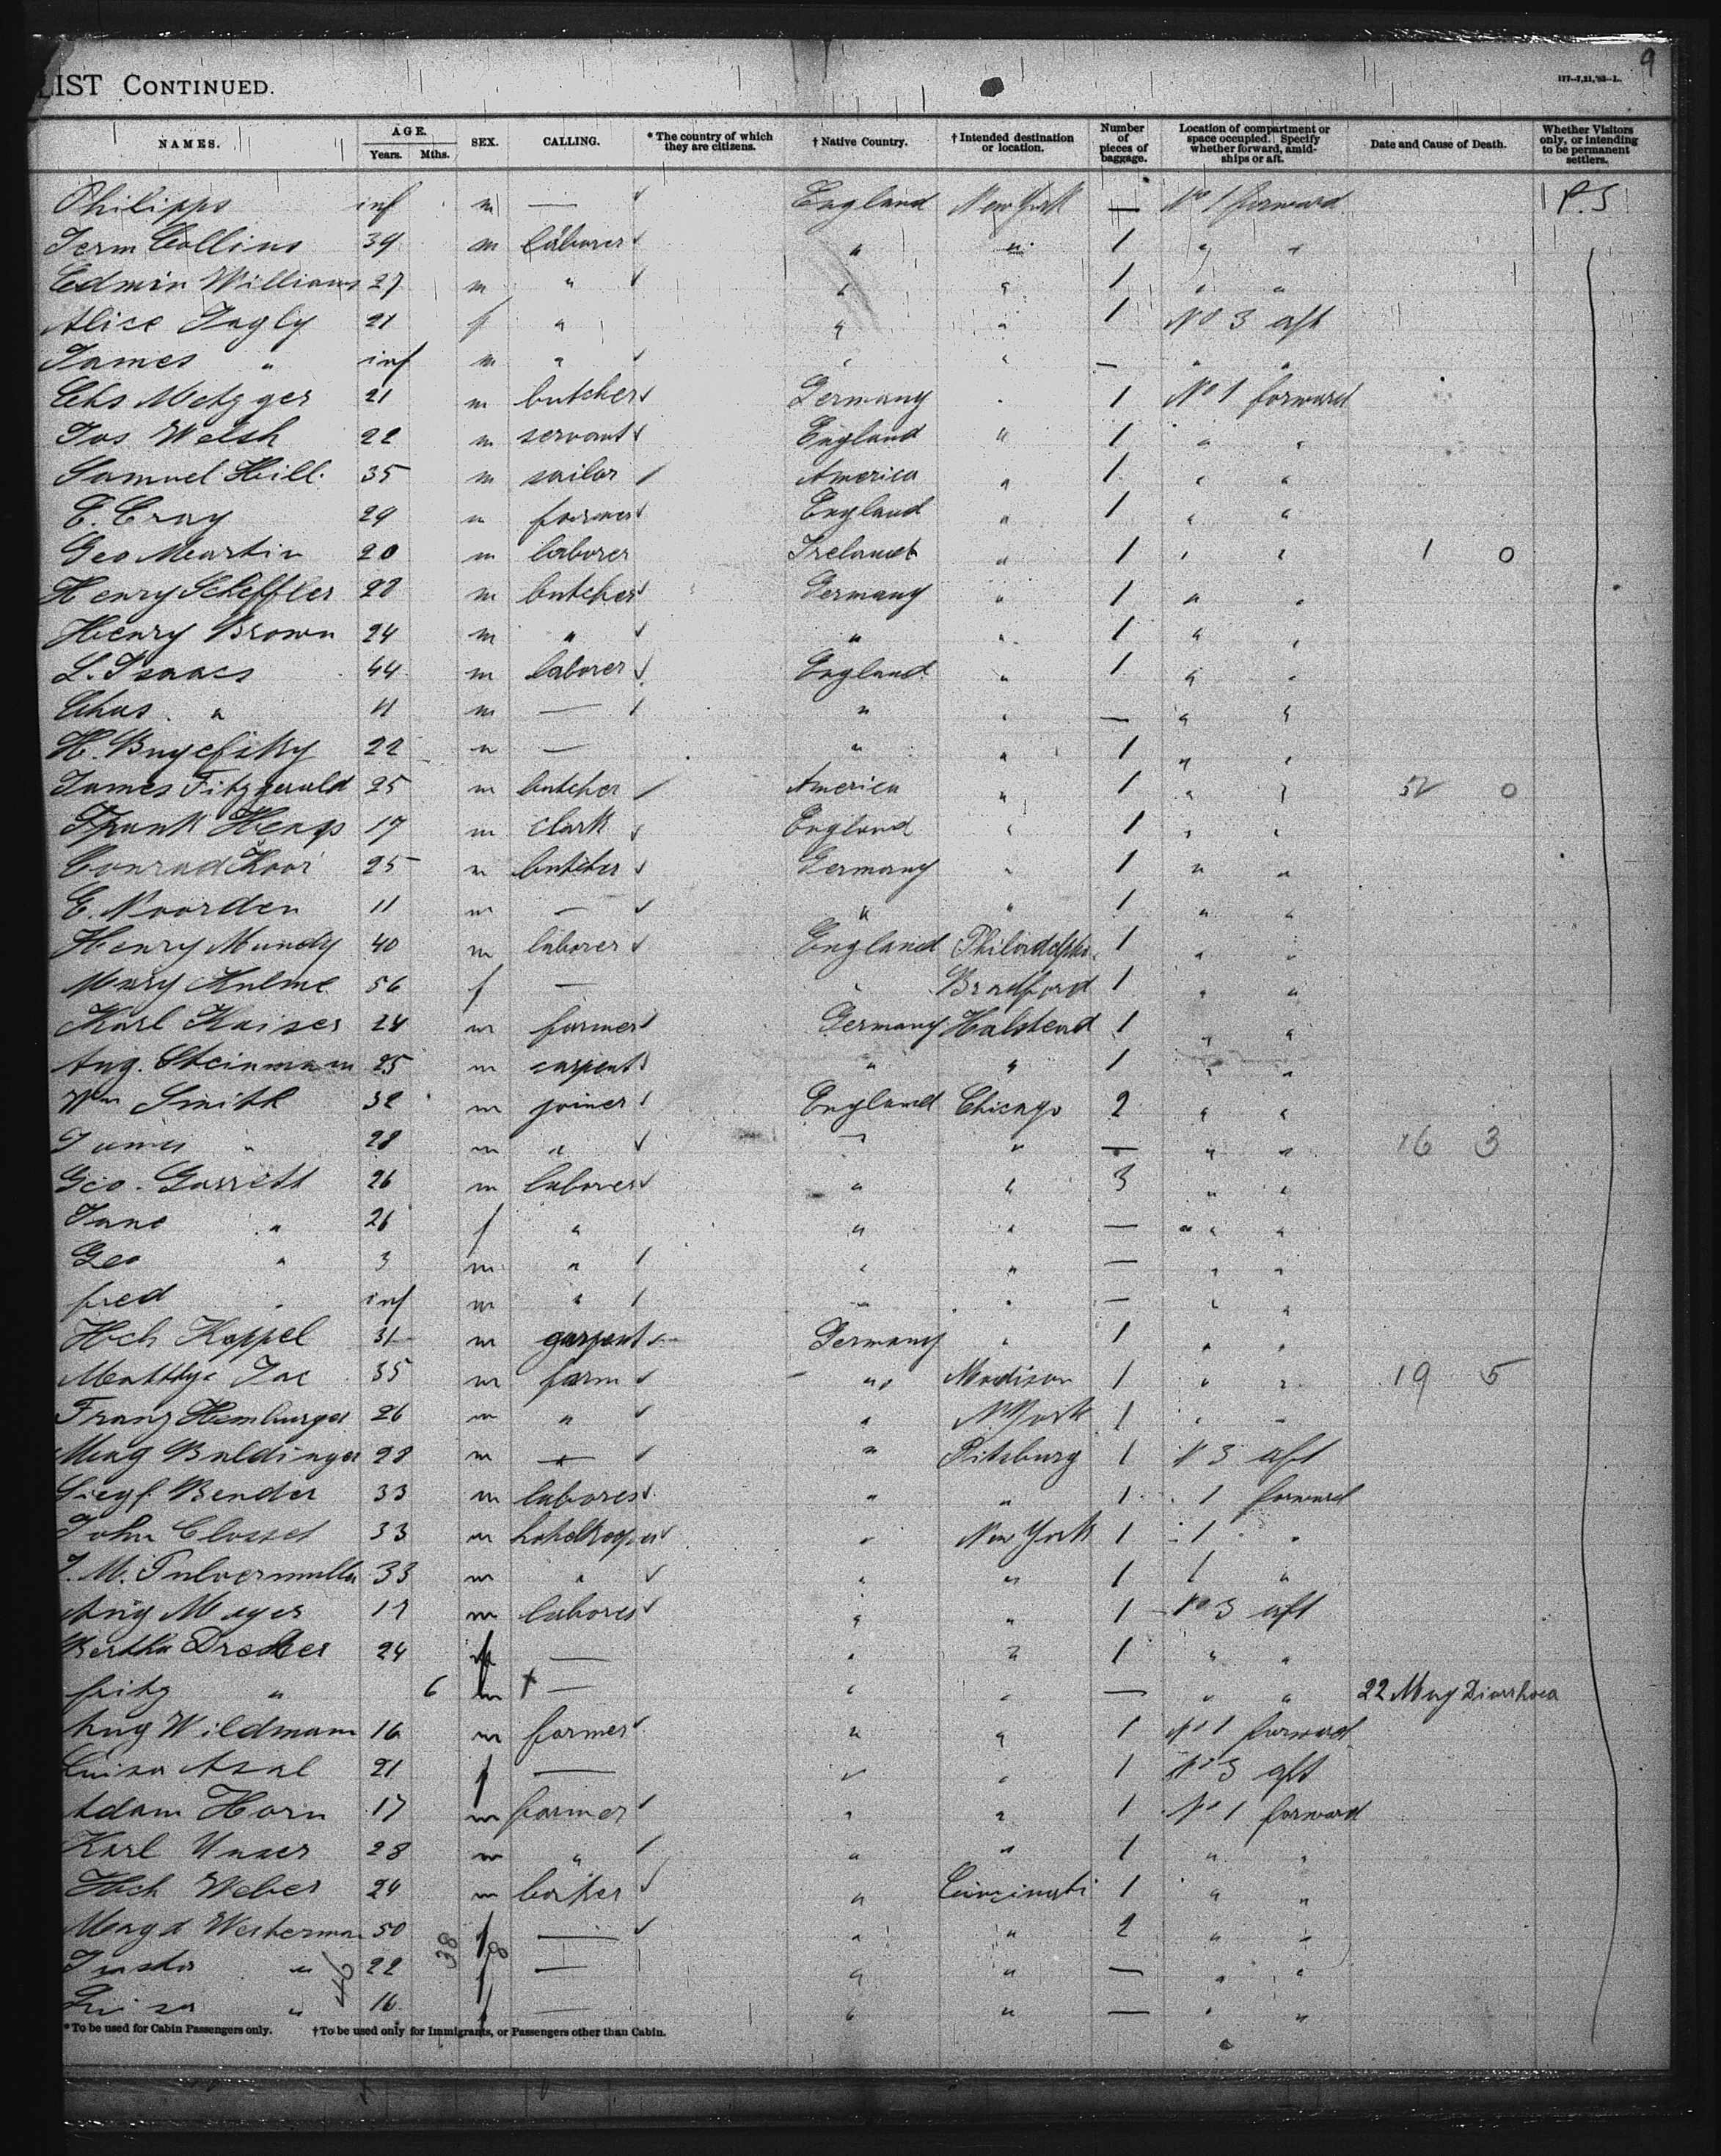 LIST CONTINUED.
9
NAMES. AGE. Years. Mths. SEX. CALLING. * The country of which they are citizens. † Native Country. † Intended destination or location. Number of pieces of baggage. Location of compartment or space occupied. Specify whether forward, amidships or aft. Date and Cause of Death. Whether Visitors only, or intending to be permanent settlers.
Philipps inf m — ✓ England New York — No 1 forward P.S
Jerm Collins 39 m laborer ✓ " " 1 " "
Edmin Williams 27 m " ✓ " " 1 " "
Alice 21 f " " " 1 No 3 aft
James " inf m " ✓ " " — " "
Chs Metzger 21 m butcher ✓ Germany " 1 No 1 forward
Jos Welsh 22 m servant ✓ England " 1 " "
Samuel Hill 35 m sailor / America " 1 " "
E. Cray 29 m farmer ✓ England " 1 " "
Geo Martin 20 m laborer Ireland " 1 " " 1 0
Henry Scheffler 28 m butcher ✓ Germany " 1 " "
Henry Brown 24 m " ✓ " " 1 " "
L. Isaacs 44 m laborer ✓ England " 1 " "
Chas. " 11 m — / " " — " "
H. 22 m — " " 1 " "
James Fitzgerald 25 m butcher / America " 1 " " 0
Frank 17 m clark ✓ England " 1 " "
Conrad 25 m butcher ✓ Germany " 1 " "
E. Noorden 11 m — ✓ " " 1 " "
Henry Mundy 40 m laborer ✓ England 1 " "
Mary Hulme 56 f — " Bradford 1 " "
Karl Kaiser 24 m farmer ✓ Germany Halstead 1 " "
Aug. Steinmann 25 m carpent ✓ " " 1 " "
Wm Smith 32 m joiner / England Chicago 2 " "
James " 28 m " ✓ " " — " " 3
Geo. Garrett 26 m laborer ✓ " " 3 " "
Jane " 26 f " " " — " "
Geo " 3 m " / " " — " "
fred " inf m " / " " — " "
Hch Kappel 31 m carpent ✓ Germany " 1 " "
Jac 35 m farm ✓ " Madison 1 " " 19 5
Franz Hemburger 26 m " ✓ " N York 1 " "
Baldinger 28 m — ✓ " Pitsburg 1 No 3 aft
Siegf. Bender 33 m laborer ✓ " " 1 " 1 forward
John Closset 33 m hotelkeeper ✓ " New York 1 " 1 "
J. M. 33 m " ✓ " " 1 1 "
Aug Meyer 17 m laborer ✓ " " 1 No 3 aft
Bertha Dreher 24 f — " " 1 " "
fritz " 6 m † — " " — " " 22 May Diarrhoea
Aug Wildmann 16 m farmer ✓ " " 1 No 1 forward
Luisa Asal 21 f — " " 1 No 3 aft
Adam Horn 17 m farmer / " " 1 No 1 forward
Karl Unser 28 m " / " " 1 " "
Hch Weber 24 m baker ✓ " Cincinati 1 " "
Magd Westerman 50 f — ✓ " " 2 " "
" 22 f — " " — " "
Luisa " 16 f — " " — " "
46 38 8
* To be used for Cabin Passengers only. † To be used only for Immigrants, or Passengers other than Cabin.